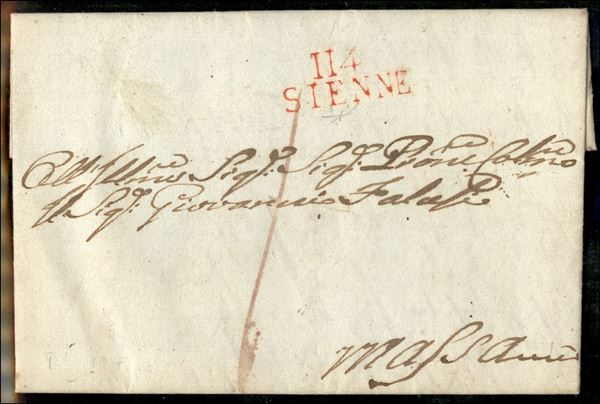 114
SIENNE
All' Illmo Sigr. Sigr. Prone Colmo
Il Sigr. Giovannio Falasi
Massa